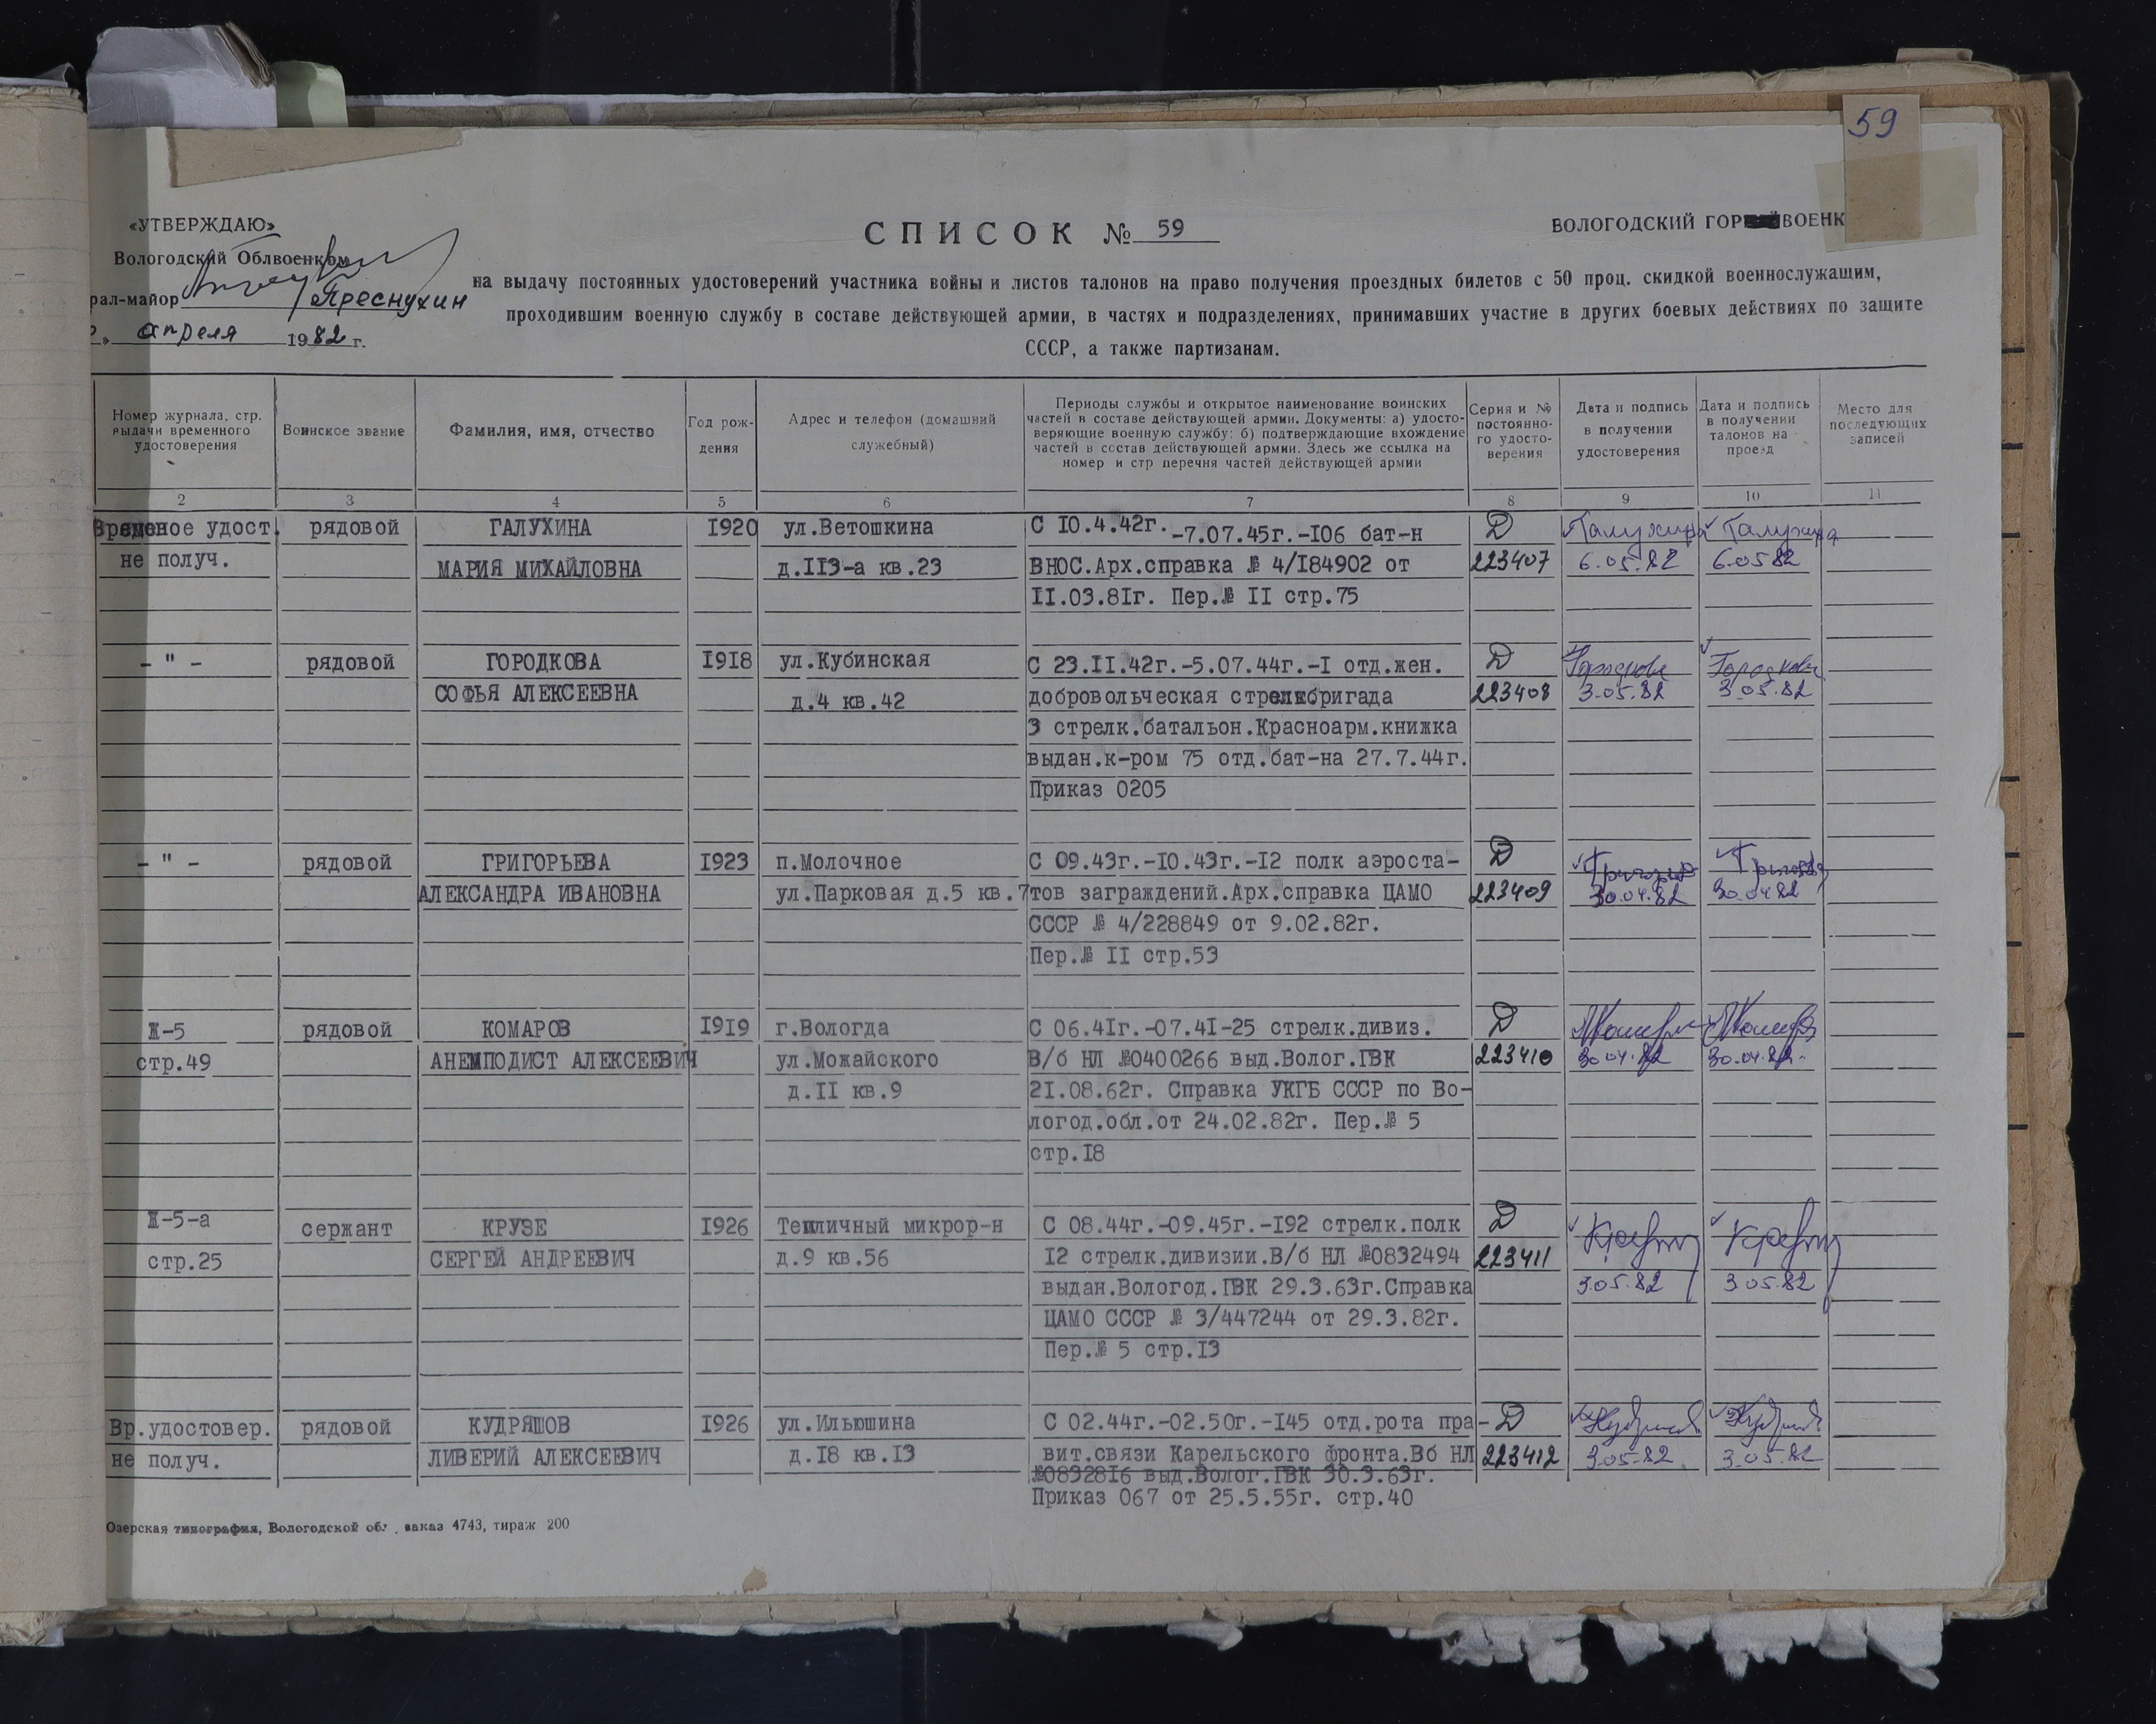 59
«УТВЕРЖДАЮ»
Вологодский Облвоенком
рал-майор Преснухин
» апреля 1982 г.
СПИСОК № 59
ВОЛОГОДСКИЙ ГОР ВОЕНК
на выдачу постоянных удостоверений участника войны и листов талонов на право получения проездных билетов с 50 проц. скидкой военнослужащим,
проходившим военную службу в составе действующей армии, в частях и подразделениях, принимавших участие в других боевых действиях по защите
СССР, а также партизанам.
Номер журнала, стр. выдачи временного удостоверения
Воинское звание
Фамилия, имя, отчество
Год рож-
дения
Адрес и телефон (домашний
служебный)
Периоды службы и открытое наименование воинских
частей в составе действующей армии. Документы: а) удосто-
веряющие военную службу: б) подтверждающие вхождение
частей в состав действующей армии. Здесь же ссылка на
номер и стр перечня частей действующей армии
Серия и №
постоянно-
го удосто-
верения
Дата и подпись
в получении
удостоверения
Дата и подпись
в получении
талонов на
проезд
Место для
последующих
записей
2 3 4 5 6 7 8 9 10 11
Временое удост. рядовой ГАЛУХИНА 1920 ул.Ветошкина С 10.4.42г.-7.07.45г.-106 бат-н Д Галухина Галухина
не получ. МАРИЯ МИХАЙЛОВНА д.113-а кв.23 ВНОС.Арх.справка № 4/184902 от 223407 6.05.82 6.05 82
11.03.81г. Пер.№ 11 стр.75
- " - рядовой ГОРОДКОВА 1918 ул.Кубинская С 23.11.42г.-5.07.44г.-1 отд.жен. Д Городкова Городкова
СОФЬЯ АЛЕКСЕЕВНА д.4 кв.42 добровольческая стрелкбригада 223408 3.05.82 3.05.82
3 стрелк.батальон.Красноарм.книжка
выдан.к-ром 75 отд.бат-на 27.7.44г.
Приказ 0205
- " - рядовой ГРИГОРЬЕВА 1923 п.Молочное С 09.43г.-10.43г.-12 полк аэроста- Д
АЛЕКСАНДРА ИВАНОВНА ул.Парковая д.5 кв.7 тов заграждений.Арх.справка ЦАМО 223409 30.04.82 30.04.82
СССР № 4/228849 от 9.02.82г.
Пер.№ 11 стр.53
Ж-5 рядовой КОМАРОВ 1919 г.Вологда С 06.41г.-07.41-25 стрелк.дивиз. Д
стр.49 АНЕМПОДИСТ АЛЕКСЕЕВИЧ ул.Можайского В/б НЛ №0400266 выд.Волог.ГВК 223410 30.04.82 30.04.82
д.11 кв.9 21.08.62г. Справка УКГБ СССР по Во-
логод.обл.от 24.02.82г. Пер.№ 5
стр.18
Ж-5-а сержант КРУЗЕ 1926 Тепличный микрор-н С 08.44г.-09.45г.-192 стрелк.полк Д
стр.25 СЕРГЕЙ АНДРЕЕВИЧ д.9 кв.56 12 стрелк.дивизии.В/б НЛ №0832494 223411
выдан.Вологод.ГВК 29.3.63г.Справка 3.05.82 3.05.82
ЦАМО СССР № 3/447244 от 29.3.82г.
Пер.№ 5 стр.13
Вр.удостовер. рядовой КУДРЯШОВ 1926 ул.Ильюшина С 02.44г.-02.50г.-145 отд.рота пра- Д
не получ. ЛИВЕРИЙ АЛЕКСЕЕВИЧ д.18 кв.13 вит.связи Карельского фронта.Вб НЛ 223412 3.05.82 3.05.82
№0832816 выд.Волог.ГВК 30.3.63г.
Приказ 067 от 25.5.55г. стр.40
Озерская типография, Вологодской обл. заказ 4743, тираж 200